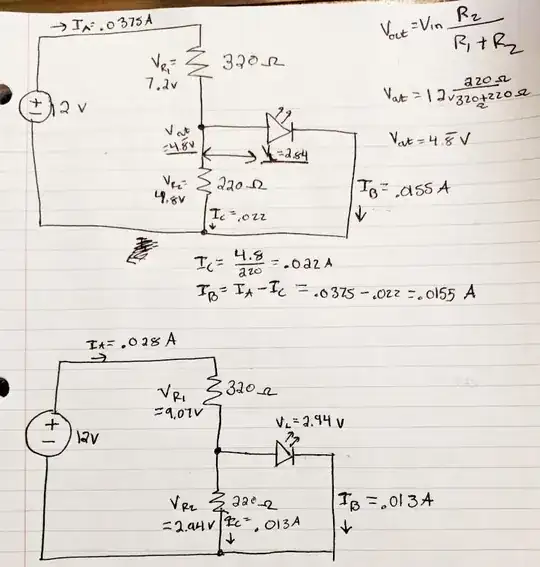 → I_A = .0375A
V_out = V_in R_2 / R_1 + R_2
V_R1 = 7.2v
320Ω
12 v
V_out = 12v 220Ω / 320+220Ω
V_out = 4.8v
V_L = 2.84
V_out = 4.8 V
V_R2 = 4.8v
220Ω
I_B = .0155 A
I_C = .022
I_C = 4.8 / 220 = .022 A
I_B = I_A - I_C = .0375 - .022 = .0155 A
I_A = .028 A
V_R1 = 9.07v
320Ω
V_L = 2.94 V
12V
V_R2 = 2.94v
220Ω
I_C = .013A
I_B = .013A